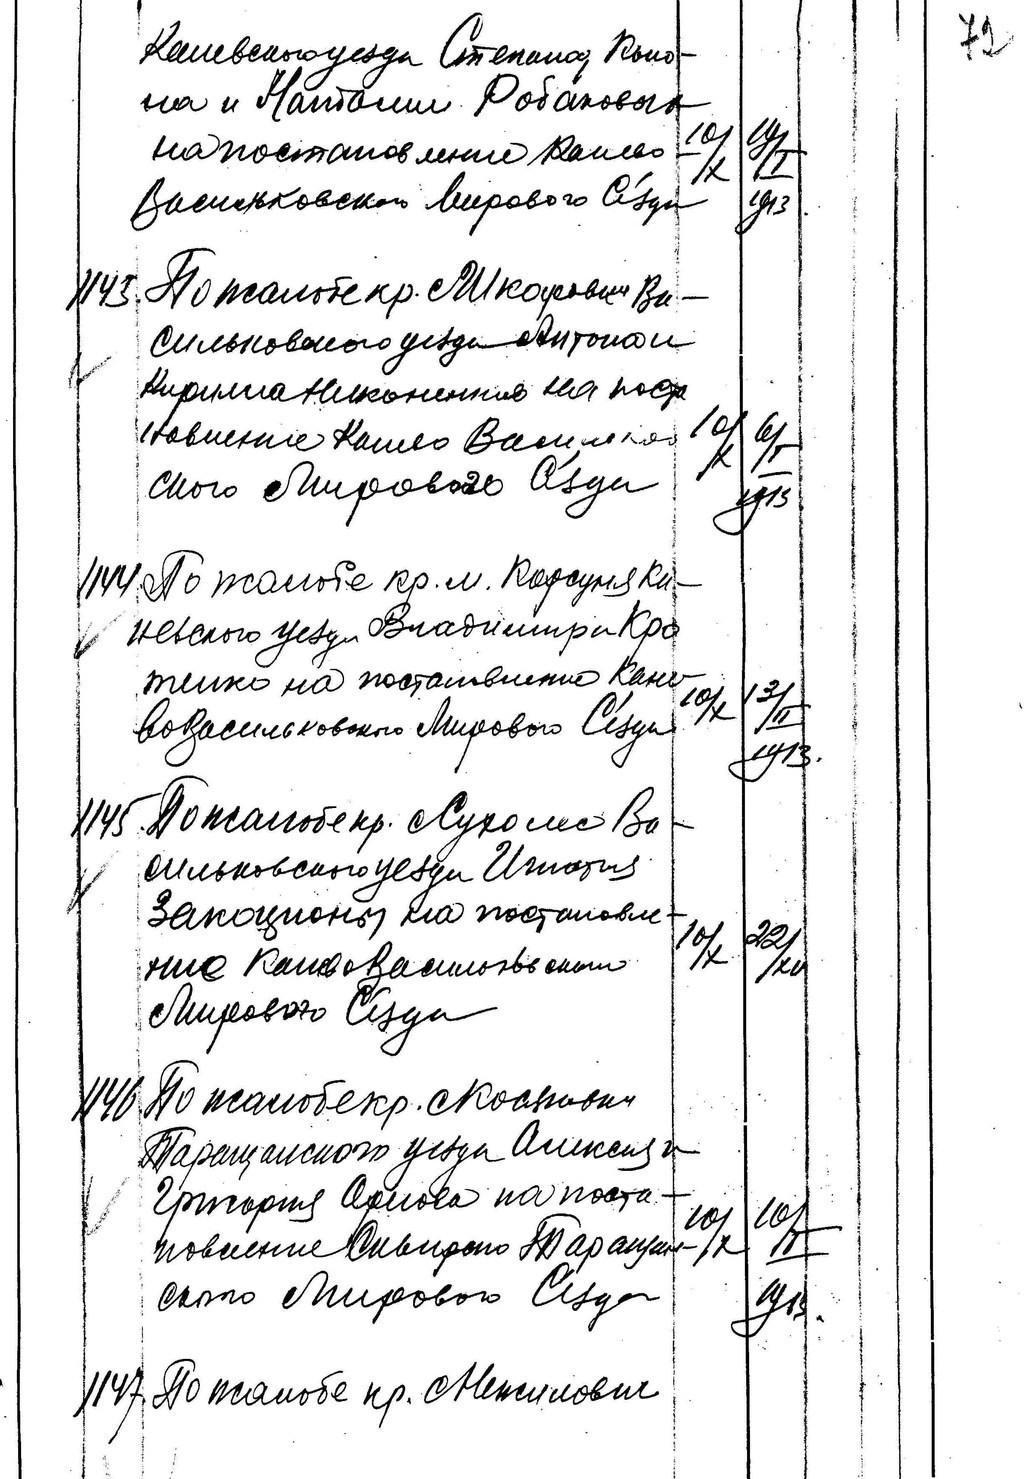 72
Каневского уезда Степана, Коно-
на и Наталии Робаковых
на постановление Канево
Васильковского Мирового Съезда 10/X 19/II 1913.
1143. По жалобе кр. с. Шкаровки Ва-
сильковского уезда Антона и
Кирилла Никоненков на поста
новление Канево Васильков
ского Мирового Съезда 10/X 6/II 1913
1144. По жалобе кр. м. Корсуня Ка-
невского уезда Владимира Кро
тенко на постановление Кане
во Васильковского Мирового Съезда 10/X 13/II 1913.
1145. По жалобе кр. с. Сухолес Ва-
сильковского уезда Игнатия
на постановле-
ние Канево Васильковского 10/X 22/XII
Мирового Съезда
1146. По жалобе кр. с.
Таращанского уезда Алексея и
Григория на поста-
новление Сквиро Таращан- 10/X 10/II
ского Мирового Съезда 1913.
1147. По жалобе кр. с.